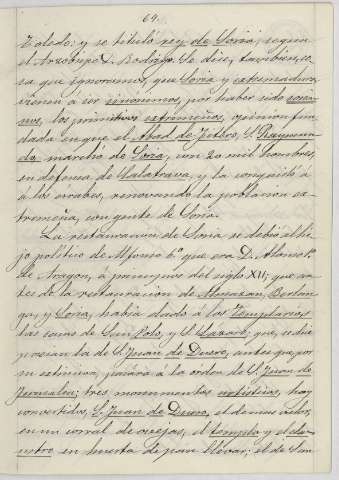 64.
Toledo; y se tituló rey de Soria, segun
el Arzobispo D. Rodrigo. Se dice, tambien, co-
sa que ignoramos, que Soria y extremadura,
vienen á ser sinónimos, por haber sido soria-
nos, los primitivos estremeños, opinion fun-
dada en que el Abad de Fitero, S. Raymun-
do, marchó de Soria, con 20 mil hombres,
en defensa de Calatrava, y la conquistó á
á los árabes, renovando la poblacion es-
tremeña, con gente de Soria.
La restauracion de Soria se debió al hi-
jo político de Alfonso 6º que era D. Alonso 1º
de Aragon, á principios del siglo XII; que an-
tes de la restauracion de Almazan, Berlan-
ga, y Soria, habia dado á los Templarios,
las casas de San Polo, y S. Lazaro; que, se dice
poseian la de S. Juan de Duero, antes que, por
su estincion, pasára á la orden de S. Juan de
Jerusalen; tres monumentos artisticos, hoy
convertidos, S. Juan de Duero, el de mas valor,
en un corral de ovejas, el templo y el claus-
tro en huerta de pan llevar; el de San